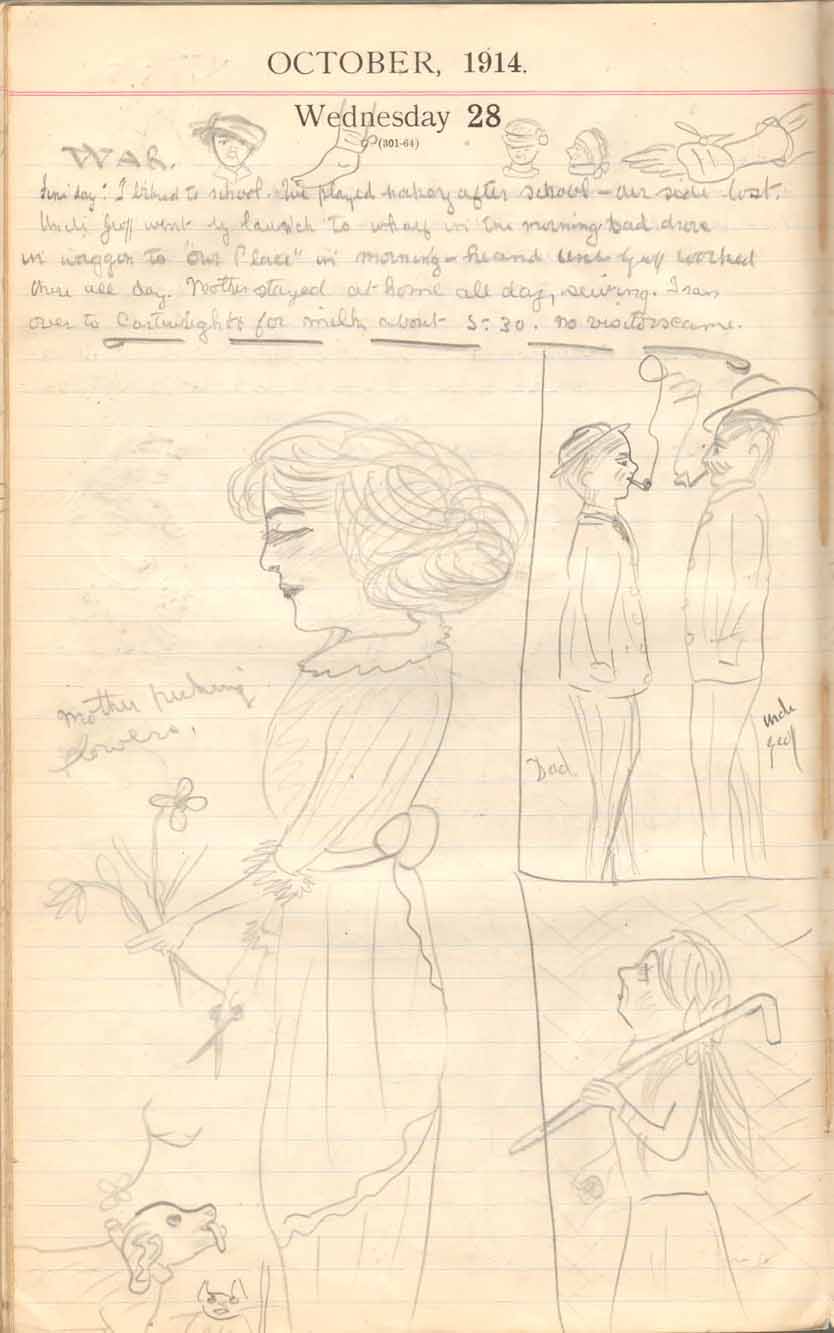 OCTOBER, 1914.
Wednesday 28
(301-64)
WAR.
Fine day. I biked to school. We played hockey after school – our side lost.
Uncle Geoff went by launch to wharf in the morning. Dad drove
in waggon to "Our Place" in morning – he and Uncle Geoff worked
there all day. Mother stayed at home all day, sewing. I ran
over to Cartwrights for milk about 5:30. No visitors came.
Mother picking
flowers.
Dad
uncle
geoff